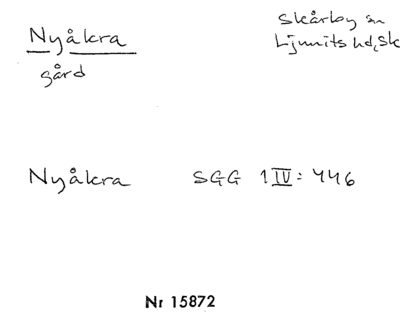 Nyåkra
gård
Skårby sn
Ljunits hd, Sk
Nyåkra SGG 1 IV: 446
Nr 15872